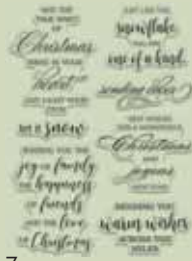 MAY THE
TRUE SPIRIT
OF
Christmas
SHINE IN YOUR
heart
AND LIGHT YOUR
let it snow
WISHING YOU THE
joy of family
the happiness
of friends
AND THE love
of Christmas
JUST LIKE THE
snowflake
YOU ARE
one of a kind.
sending love
BEST WISHES
FOR A WONDERFUL
Christmas
AND
joyous
NEW YEAR
SENDING YOU
warm wishes
ACROSS THE
MILES
7